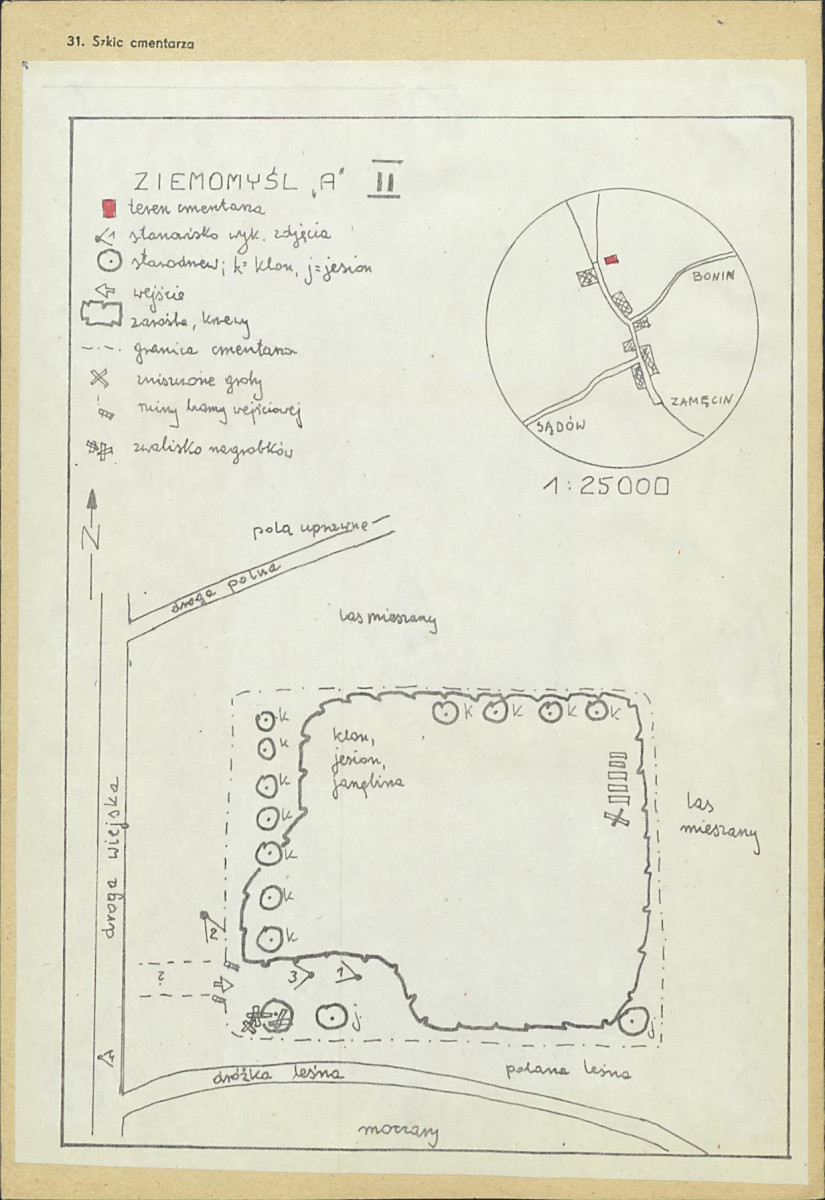 31. Szkic cmentarza
ZIEMOMYŚL „A" II
teren cmentarza
1 stanowisko wyk. zdjęcia
starodrzew; k= klon, j= jesion
wejście
zarośla, krzewy
granica cmentarza
zniszczone groby
ruiny bramy wejściowej
zwalisko nagrobków
BONIN
ZAMĘCIN
SĄDÓW
1:25000
N
pola uprawne
droga polna
las mieszany
k
k
k
k
k
k
k
k
k
k
k
klon,
jesion,
las
mieszany
droga wiejska
2
?
3
1
4
j
j
dróżka leśna
polana leśna
moczary